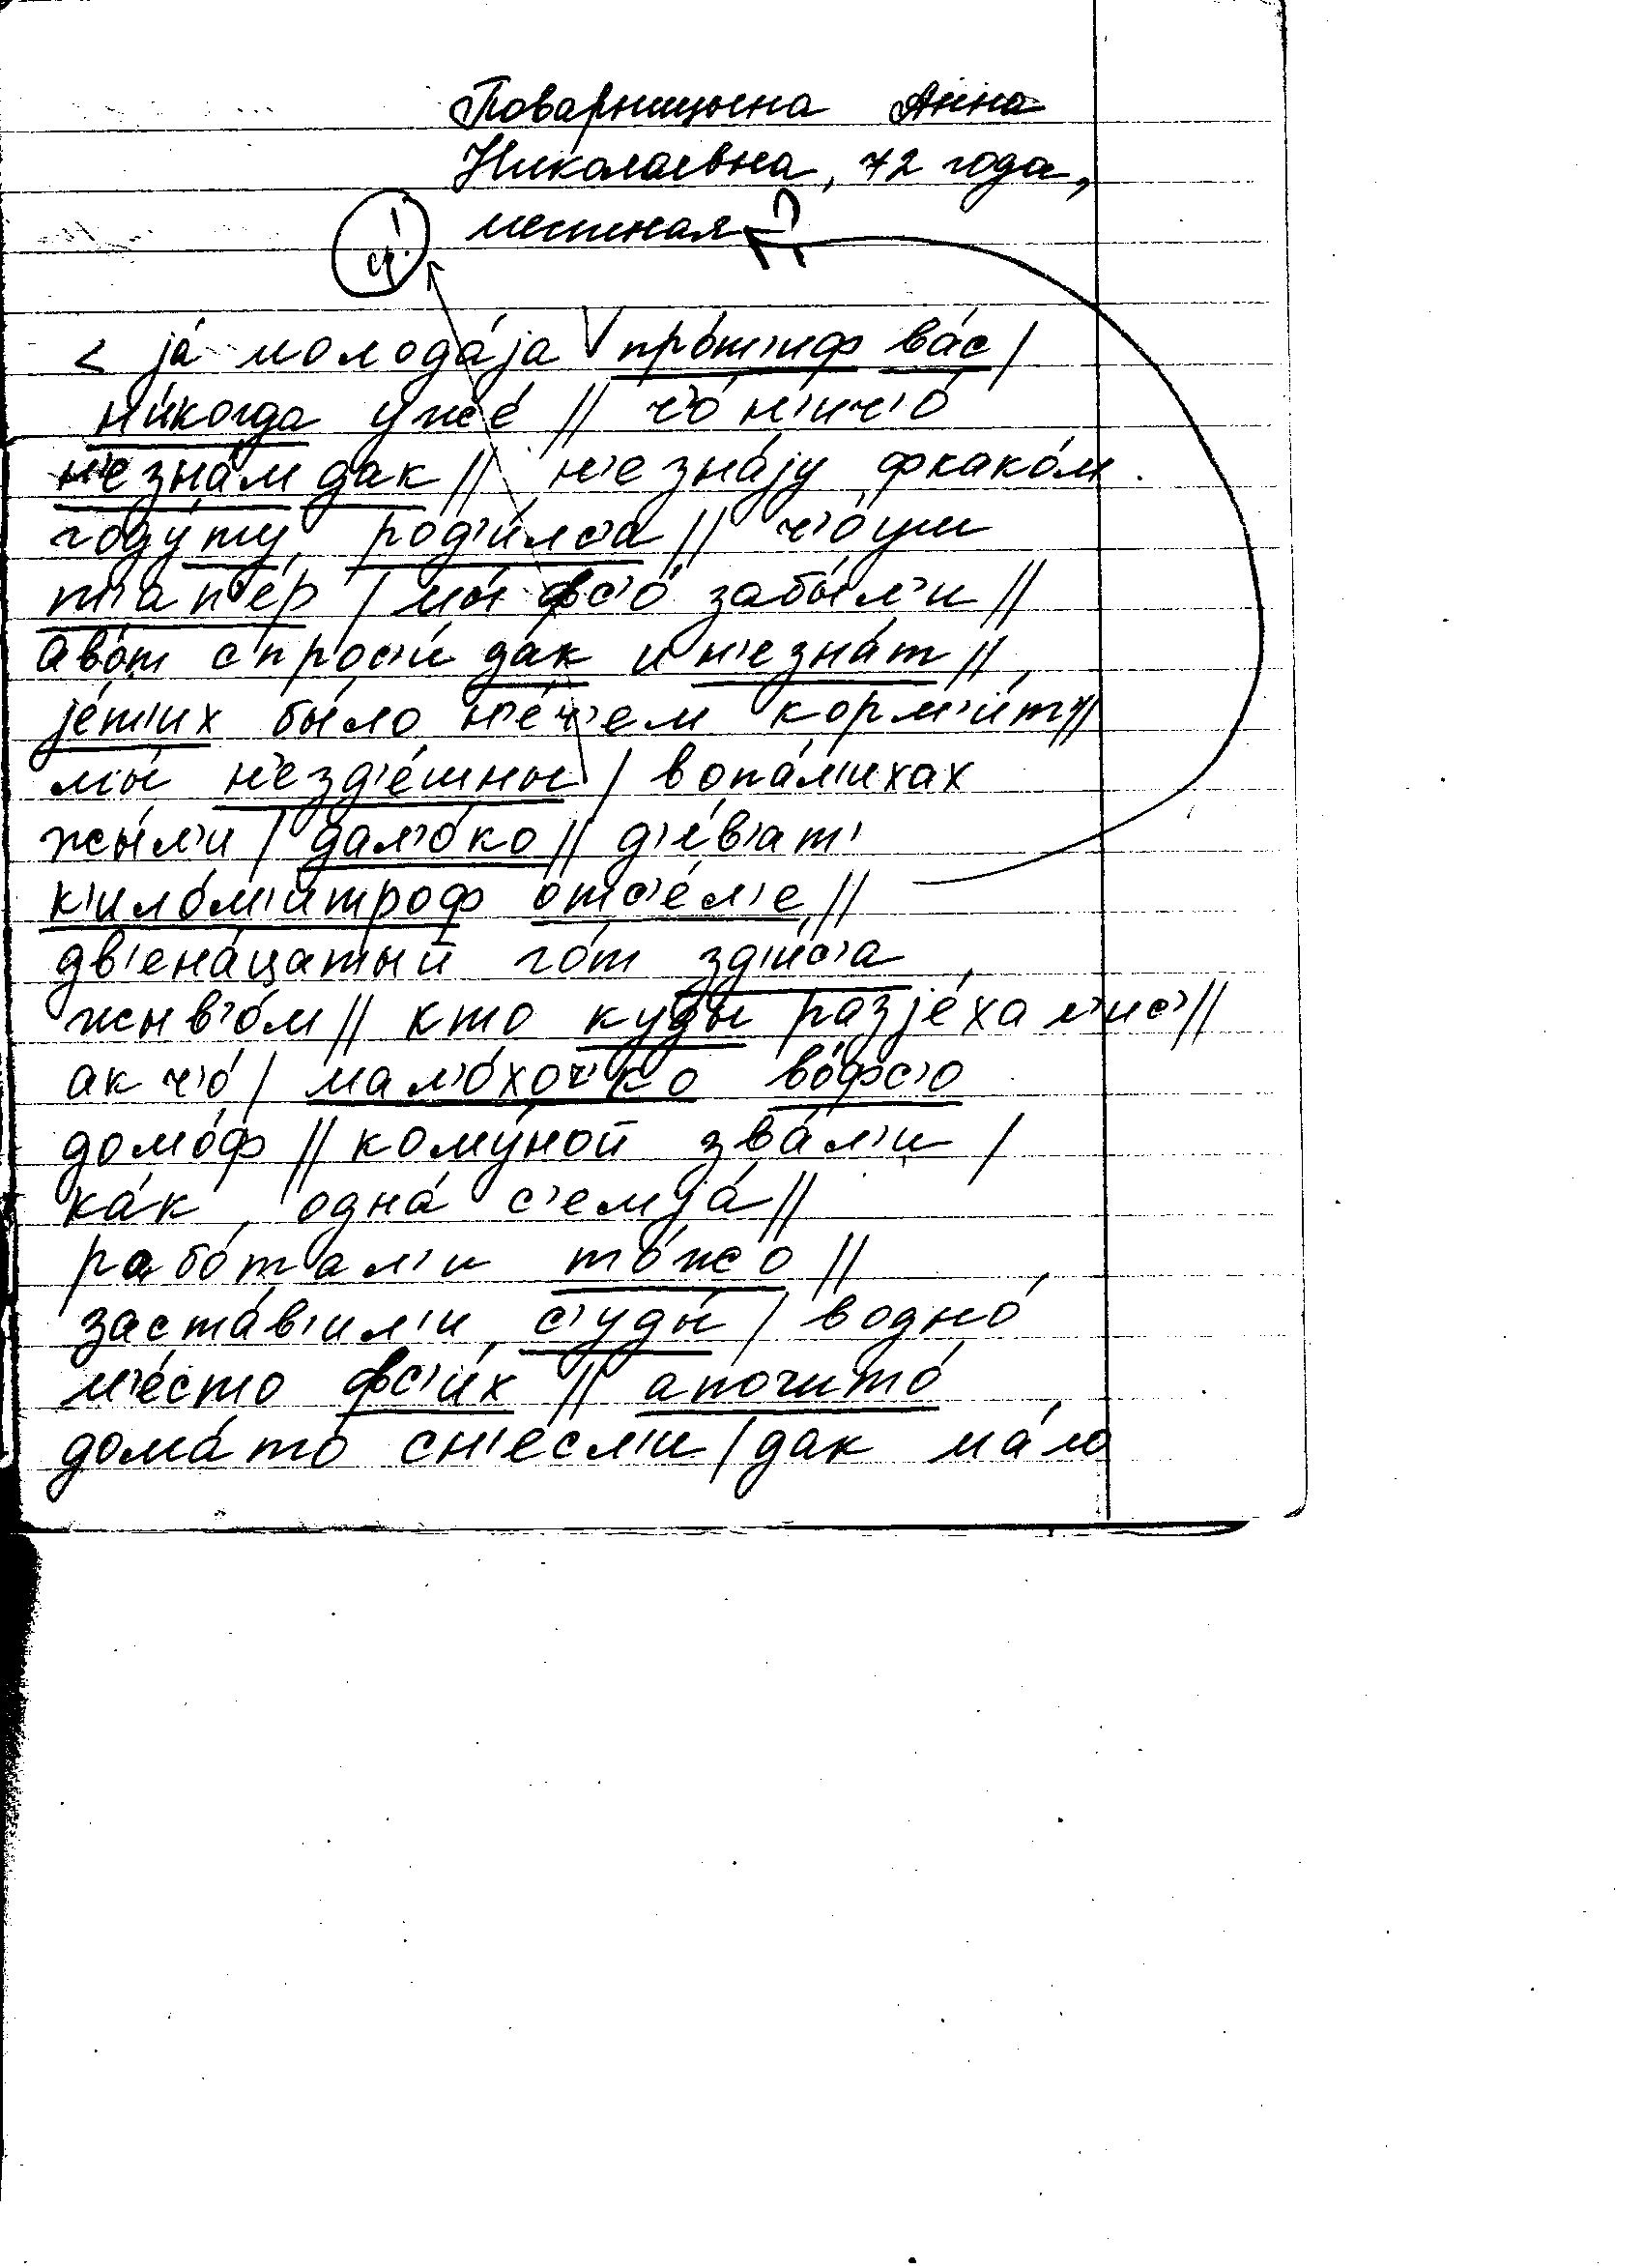 Поварницына Анна
Николаевна, 72 года,
местная ?
ср!
< jа́ молода́jа | про́т'иф ва́с /
н'и́когда уже́ // ч'о́ н'ич'о́
н'езна́м дак // н'е зна́jу фкако́м
году́ ту род'и́лс'а // ч'о́ уш
т'ап'е́р / мы́ фс'о́ забы́л'и //
аво́т спрос'и́ да́к и н'езна́т //
jе́т'их бы́ло н'е́ч'ем корм'и́т' //
мы́ н'езд'е́шны / вопа́л'ихах
жы́л'и / дал'о́ко // д'е́в'ат'
к'ило́м'итроф отс'е́л'е //
дв'ена́цатый го́т зд'и́с'а
жыв'о́м // кто куды́ разjе́хал'ис' //
ак ч'о́ / мал'о́хоч'ко во́фс'о
домо́ф // кому́ной зва́л'и /
ка́к одна́ с'емjа́ //
рабо́тал'и то́жо //
заста́в'ил'и с'уды́ / водно́
м'е́сто фс'и́х // апочито́
дома́ то сн'есл'и́ / дак ма́ло